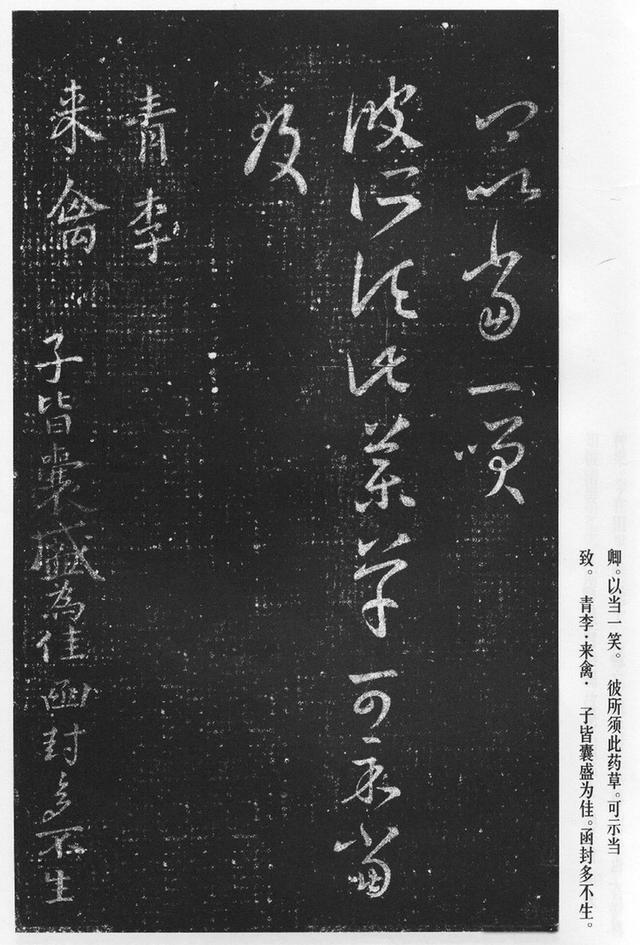 卿。以当一笑。 彼所须此药草。可示当
致。 青李·来禽· 子皆囊盛为佳。函封多不生。
卿以當一咲
彼所須此藥草可示當
致
青李
来禽 子皆囊盛為佳函封多不生